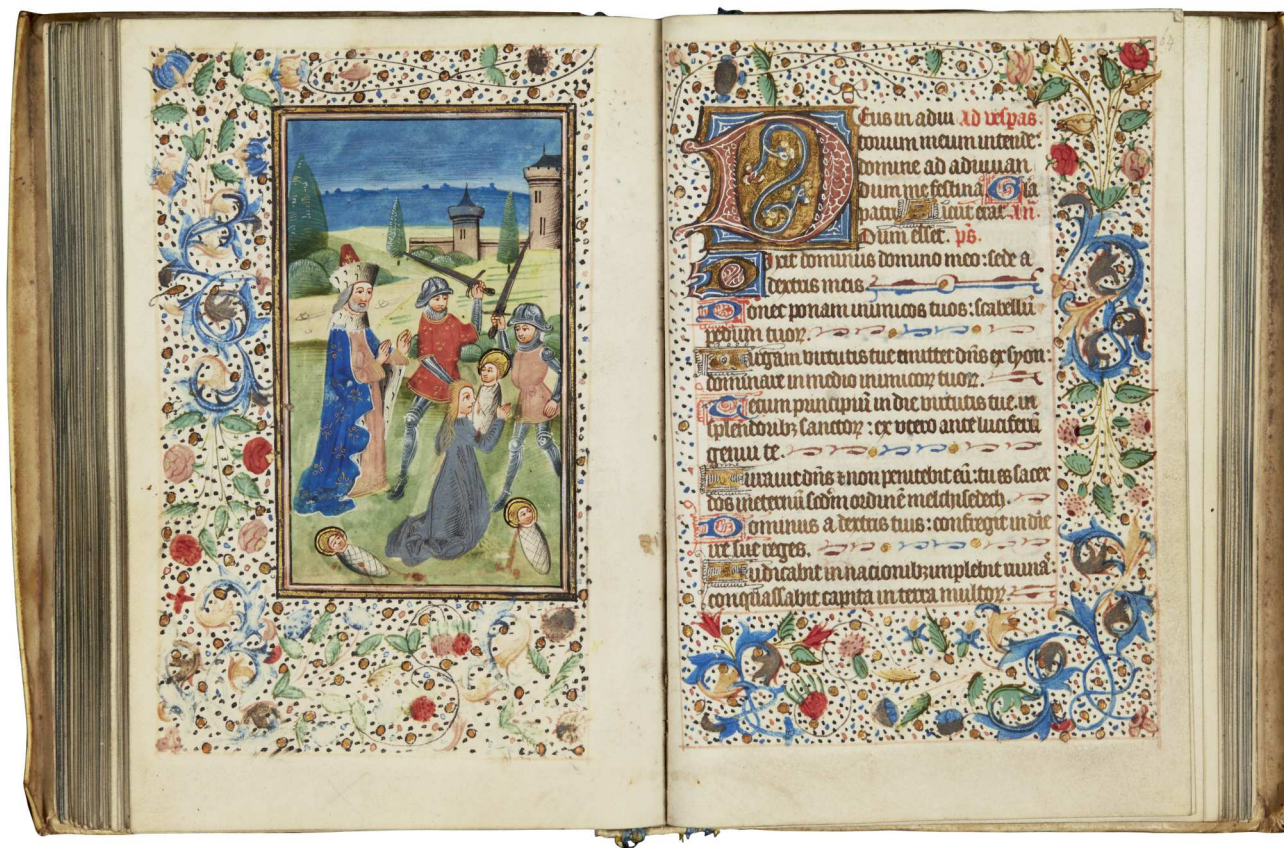 64
Eus in adiu Ad vesp̄as.
torium meum intende
domine ad adiuuan
dum me festina Gl̄ia
patri Sicut erat. An̄.
Dum esset. ps̄.
Dixit dominus domino meo: sede a
dextris meis
Donec ponam inimicos tuos: scabellū
pedum tuoꝝ.
Uirgam virtutis tue emittet dn̄s ex syon:
dominare in medio inimicoꝝ tuoꝝ.
Tecum principiū in die virtutis tue. in
splendoribꝫ sanctoꝝ: ex vtero ante luciferū
genui te.
Iurauit dn̄s ⁊ non penitebit eū: tu es sacer
dos in eternū scd̄m ordinē melchisedech.
Dominus a dextris tuis: confregit in die
ire sue reges.
Iudicabit in nacionibꝫ implebit ruinas̄
conquassabit capita in terra multoꝝ.